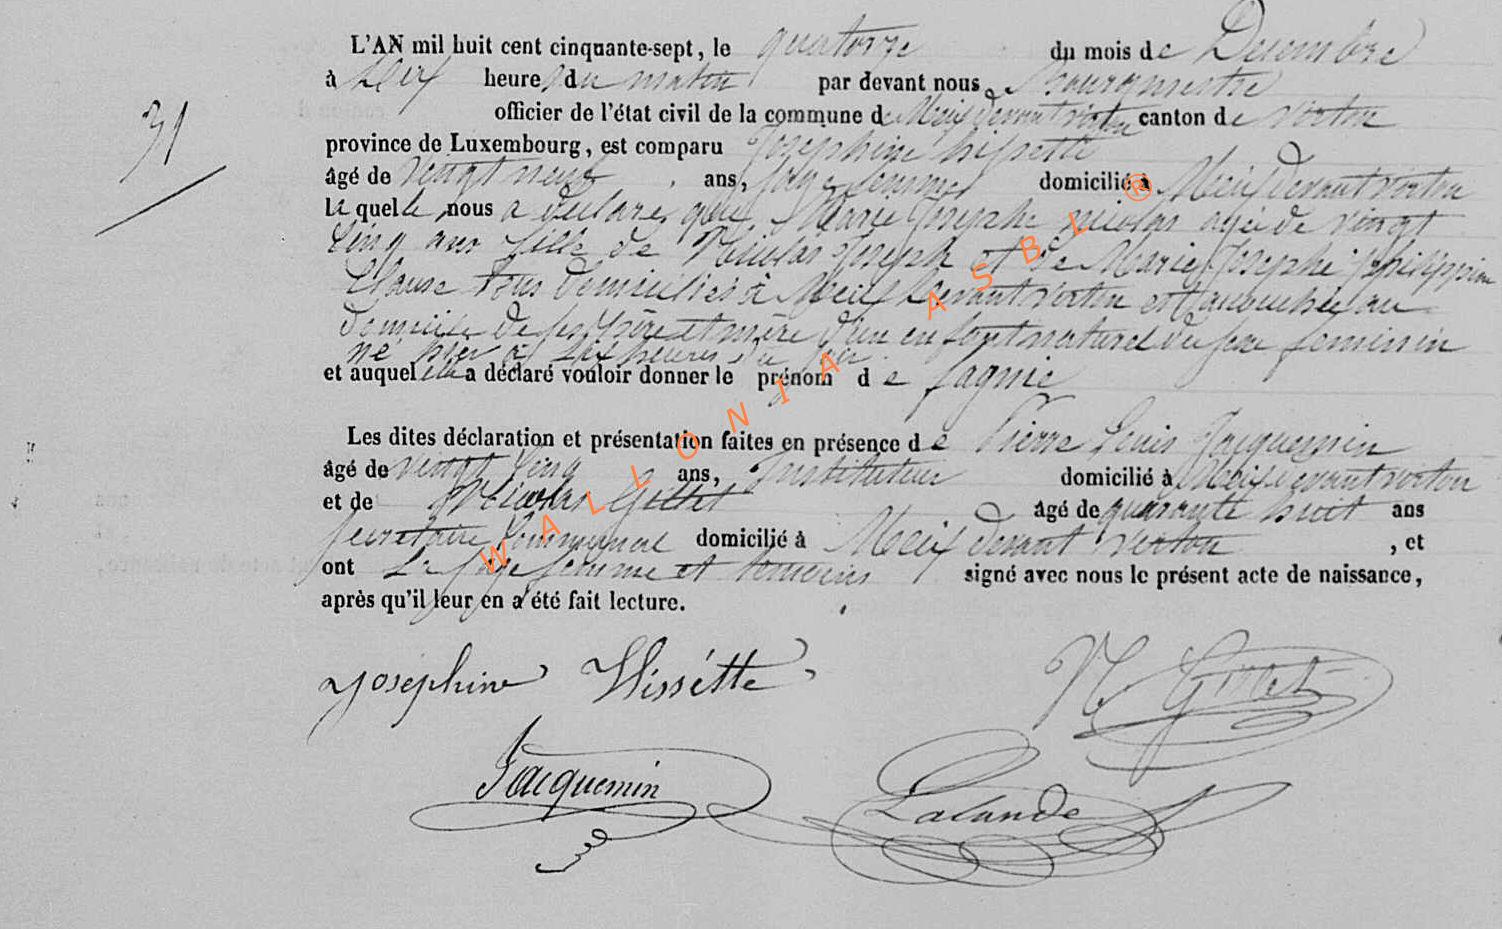 L'AN mil huit cent cinquante-sept, le quatorze du mois de Decembre
à dix heures du matin par devant nous Bourgmestre
31
officier de l'état civil de la commune de Meix devant virton canton de virton
province de Luxembourg, est comparu Josephine
âgé de vingt neuf ans, sage femme domicilié à Meix devant virton
la quelle nous a declaré que Marie Josephe nicolas agée de vingt
cinq ans fille de Nicolas Joseph et de Marie Josephe philippine
Clause tous domiciliés à Meix devant virton est accouchée au
domicile de ses père et mère d'un enfant naturel du sexe feminin
né hier à six heures du soir
et auquel elle a déclaré vouloir donner le prénom de
Les dites déclaration et présentation faites en présence de Pierre Louis Jacquemin
âgé de vingt cinq ans, Instituteur domicilié à Meix devant virton
et de Nicolas âgé de quarante huit ans
secretaire Communal domicilié à Meix devant virton , et
ont la sage femme et temoins signé avec nous le présent acte de naissance,
après qu'il leur en a été fait lecture.
Joséphine Hissétte
N.
Jacquemin
Lalande
WALLONIA ASBL ®